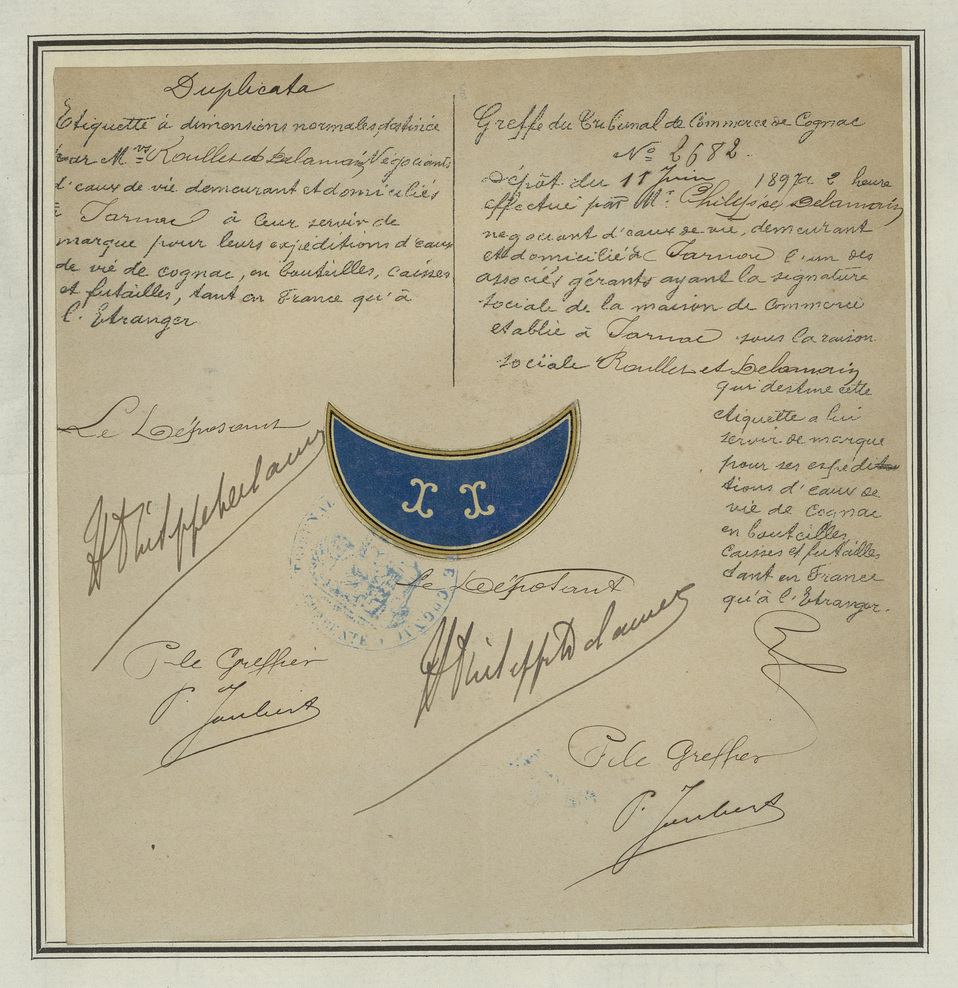 Duplicata
Etiquette à dimensions normales destinée
par Mrs Roullet et Delamain Négociants
d'eaux de vie demeurant et domiciliés
à Jarnac à leur servir de
marque pour leurs expéditions d'eaux
de vie de cognac, en bouteilles, caisses
et futailles, tant en France qu'à
l'Etranger
Le Déposant
Ph Philippe Delamain
P. le Greffier
P. Joubert
Greffe du Tribunal de Commerce de Cognac
No 2682.
Dépôt du 11 Juin 1897 à 2 heure
effectué par Mr Philippe Delamain
négociant d'eaux de vie, demeurant
et domicilié à Jarnac l'un des
associés gérants ayant la signature
sociale de la maison de Commerce
etablie à Jarnac sous la raison
sociale Roullet et Delamain
qui destine cette
étiquette a lui
servir de marque
pour ses expédi-
tions d'eaux de
vie de Cognac
en bouteilles,
caisses et futailles
tant en France
qu'à l'Etranger.
XX
TRIBUNAL DE COGNAC
Le Déposant
Philippe Delamain
P. le Greffier
P. Joubert